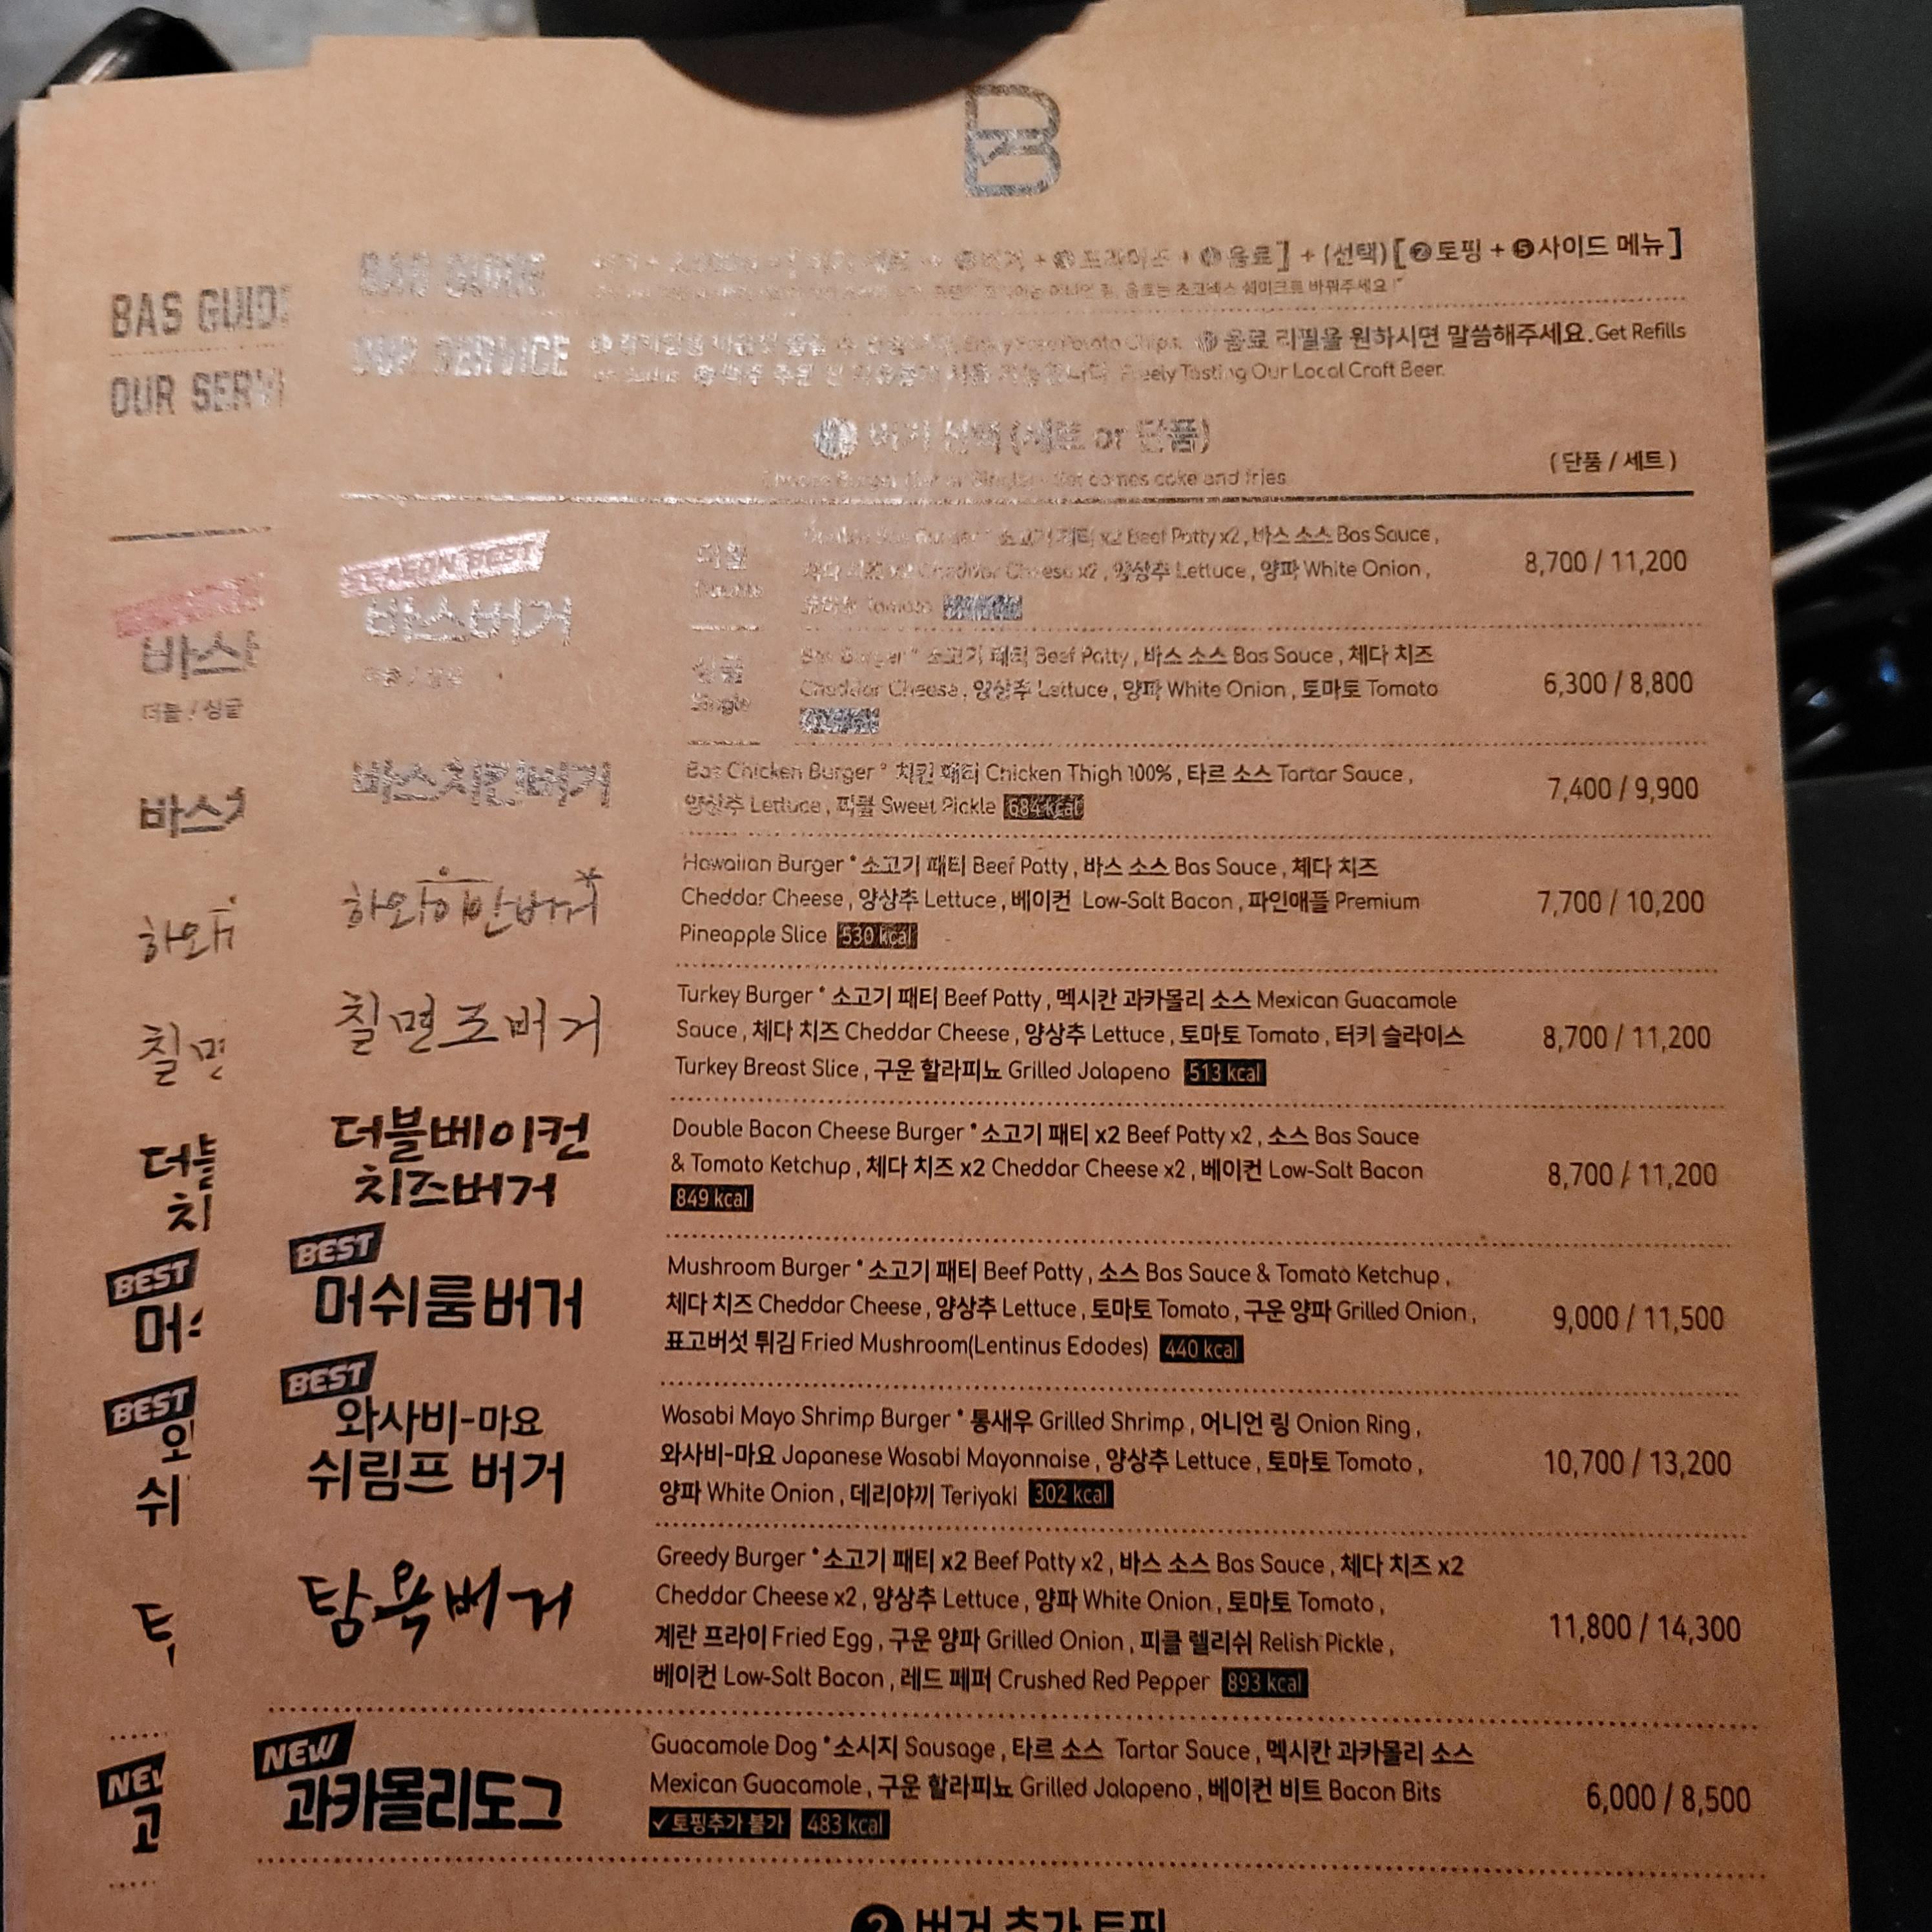 BAS GUIDE
음료] + (선택) [❷토핑 + ❺사이드 메뉴]
음료는 초코넥스 쉐이크로 바꿔주세요!"
OUR SERVICE
Potato Chips. 음료 리필을 원하시면 말씀해주세요. Get Refills
Freely Tasting Our Local Craft Beer.
버거 선택 (세트 or 단품)
comes coke and fries
(단품 / 세트)
SEASON BEST
바스버거
더블 / 싱글
더블
Double
소고기 패티 x2 Beef Patty x2, 바스 소스 Bas Sauce,
체다 치즈 x2 Cheddar Cheese x2, 양상추 Lettuce, 양파 White Onion,
토마토 Tomato
8,700 / 11,200
싱글
Single
Bas Burger * 소고기 패티 Beef Patty, 바스 소스 Bas Sauce, 체다 치즈
Cheddar Cheese, 양상추 Lettuce, 양파 White Onion, 토마토 Tomato
6,300 / 8,800
바스치킨버거
Bas Chicken Burger * 치킨 패티 Chicken Thigh 100%, 타르 소스 Tartar Sauce,
양상추 Lettuce, 피클 Sweet Pickle 684 kcal
7,400 / 9,900
하와이안버거
Hawaiian Burger * 소고기 패티 Beef Patty, 바스 소스 Bas Sauce, 체다 치즈
Cheddar Cheese, 양상추 Lettuce, 베이컨 Low-Salt Bacon, 파인애플 Premium
Pineapple Slice 530 kcal
7,700 / 10,200
칠면조버거
Turkey Burger * 소고기 패티 Beef Patty, 멕시칸 과카몰리 소스 Mexican Guacamole
Sauce, 체다 치즈 Cheddar Cheese, 양상추 Lettuce, 토마토 Tomato, 터키 슬라이스
Turkey Breast Slice, 구운 할라피뇨 Grilled Jalapeno 513 kcal
8,700 / 11,200
더블베이컨
치즈버거
Double Bacon Cheese Burger * 소고기 패티 x2 Beef Patty x2, 소스 Bas Sauce
& Tomato Ketchup, 체다 치즈 x2 Cheddar Cheese x2, 베이컨 Low-Salt Bacon
849 kcal
8,700 / 11,200
BEST
머쉬룸버거
Mushroom Burger * 소고기 패티 Beef Patty, 소스 Bas Sauce & Tomato Ketchup,
체다 치즈 Cheddar Cheese, 양상추 Lettuce, 토마토 Tomato, 구운 양파 Grilled Onion,
표고버섯 튀김 Fried Mushroom(Lentinus Edodes) 440 kcal
9,000 / 11,500
BEST
와사비-마요
쉬림프 버거
Wasabi Mayo Shrimp Burger * 통새우 Grilled Shrimp, 어니언 링 Onion Ring,
와사비-마요 Japanese Wasabi Mayonnaise, 양상추 Lettuce, 토마토 Tomato,
양파 White Onion, 데리야끼 Teriyaki 302 kcal
10,700 / 13,200
탐욕버거
Greedy Burger * 소고기 패티 x2 Beef Patty x2, 바스 소스 Bas Sauce, 체다 치즈 x2
Cheddar Cheese x2, 양상추 Lettuce, 양파 White Onion, 토마토 Tomato,
계란 프라이 Fried Egg, 구운 양파 Grilled Onion, 피클 렐리쉬 Relish Pickle,
베이컨 Low-Salt Bacon, 레드 페퍼 Crushed Red Pepper 893 kcal
11,800 / 14,300
NEW
과카몰리도그
Guacamole Dog * 소시지 Sausage, 타르 소스 Tartar Sauce, 멕시칸 과카몰리 소스
Mexican Guacamole, 구운 할라피뇨 Grilled Jalapeno, 베이컨 비트 Bacon Bits
✓토핑추가 불가 483 kcal
6,000 / 8,500
❷ 버거 추가 토핑